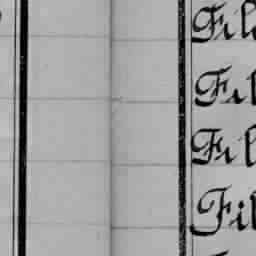 Fil
Fil
Fil
Fil